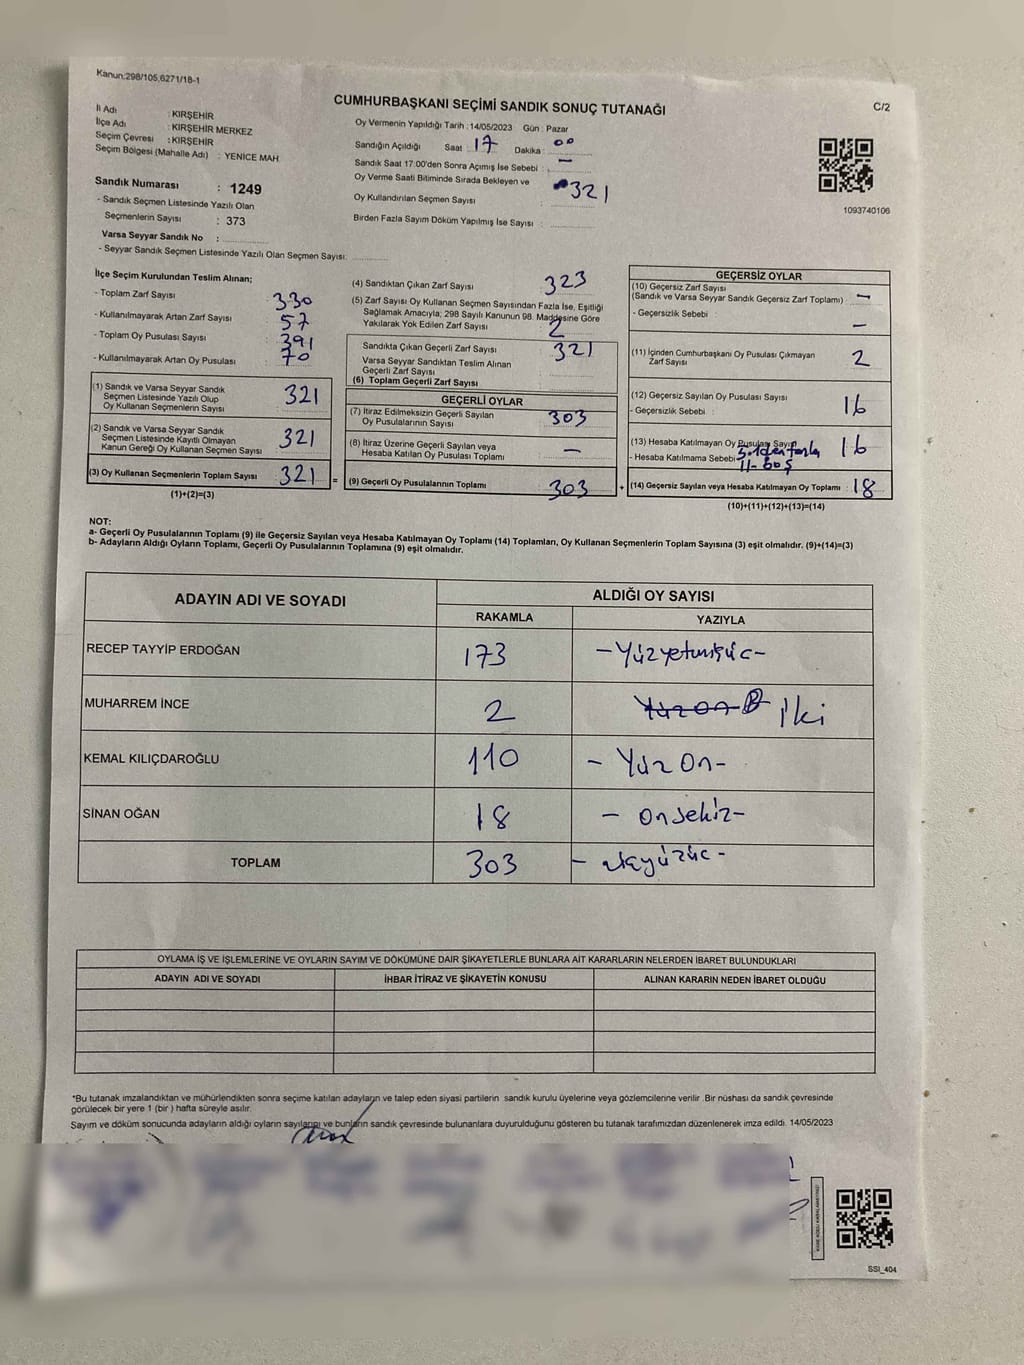 Kanun:298/105,6271/18-1
CUMHURBAŞKANI SEÇİMİ SANDIK SONUÇ TUTANAĞI
C/2
İl Adı : KIRŞEHİR
İlçe Adı : KIRŞEHİR MERKEZ
Seçim Çevresi : KIRŞEHİR
Seçim Bölgesi (Mahalle Adı) : YENICE MAH.
Sandık Numarası : 1249
- Sandık Seçmen Listesinde Yazılı Olan
Seçmenlerin Sayısı : 373
Varsa Seyyar Sandık No :
- Seyyar Sandık Seçmen Listesinde Yazılı Olan Seçmen Sayısı:
Oy Vermenin Yapıldığı Tarih : 14/05/2023 Gün : Pazar
Sandığın Açıldığı Saat : 17 Dakika : 00
Sandık Saat 17:00'den Sonra Açımış İse Sebebi : –
Oy Verme Saati Bitiminde Sırada Bekleyen ve
Oy Kullandırılan Seçmen Sayısı : 321
Birden Fazla Sayım Döküm Yapılmış İse Sayısı :
1093740106
İlçe Seçim Kurulundan Teslim Alınan;
- Toplam Zarf Sayısı 330
- Kullanılmayarak Artan Zarf Sayısı : 57
- Toplam Oy Pusulası Sayısı : 391
- Kullanılmayarak Artan Oy Pusulası : 70
(1) Sandık ve Varsa Seyyar Sandık
Seçmen Listesinde Yazılı Olup
Oy Kullanan Seçmenlerin Sayısı 321
(2) Sandık ve Varsa Seyyar Sandık
Seçmen Listesinde Kayıtlı Olmayan
Kanun Gereği Oy Kullanan Seçmen Sayısı 321
(3) Oy Kullanan Seçmenlerin Toplam Sayısı 321 =
(1)+(2)=(3)
(4) Sandıktan Çıkan Zarf Sayısı 323
(5) Zarf Sayısı Oy Kullanan Seçmen Sayısından Fazla İse, Eşitliği
Sağlamak Amacıyla; 298 Sayılı Kanunun 98. Maddesine Göre
Yakılarak Yok Edilen Zarf Sayısı 2
Sandıkta Çıkan Geçerli Zarf Sayısı 321
Varsa Seyyar Sandıktan Teslim Alınan
Geçerli Zarf Sayısı
(6) Toplam Geçerli Zarf Sayısı
GEÇERLİ OYLAR
(7) İtiraz Edilmeksizin Geçerli Sayılan
Oy Pusulalarının Sayısı 303
(8) İtiraz Üzerine Geçerli Sayılan veya
Hesaba Katılan Oy Pusulası Toplamı –
(9) Geçerli Oy Pusulalarının Toplamı 303 +
GEÇERSİZ OYLAR
(10) Geçersiz Zarf Sayısı
(Sandık ve Varsa Seyyar Sandık Geçersiz Zarf Toplamı) : –
- Geçersizlik Sebebi : –
(11) İçinden Cumhurbaşkanı Oy Pusulası Çıkmayan
Zarf Sayısı 2
(12) Geçersiz Sayılan Oy Pusulası Sayısı 16
- Geçersizlik Sebebi :
(13) Hesaba Katılmayan Oy Pusulası Sayısı 16
- Hesaba Katılmama Sebebi :
11- boş
(14) Geçersiz Sayılan veya Hesaba Katılmayan Oy Toplamı : 18
(10)+(11)+(12)+(13)=(14)
NOT:
a- Geçerli Oy Pusulalarının Toplamı (9) ile Geçersiz Sayılan veya Hesaba Katılmayan Oy Toplamı (14) Toplamları, Oy Kullanan Seçmenlerin Toplam Sayısına (3) eşit olmalıdır. (9)+(14)=(3)
b- Adayların Aldığı Oyların Toplamı, Geçerli Oy Pusulalarının Toplamına (9) eşit olmalıdır.
ADAYIN ADI VE SOYADI ALDIĞI OY SAYISI
RAKAMLA YAZIYLA
RECEP TAYYİP ERDOĞAN 173
MUHARREM İNCE 2 iki
KEMAL KILIÇDAROĞLU 110 – Yüz On –
SİNAN OĞAN 18 – onsekiz –
TOPLAM 303
OYLAMA İŞ VE İŞLEMLERİNE VE OYLARIN SAYIM VE DÖKÜMÜNE DAİR ŞİKAYETLERLE BUNLARA AİT KARARLARIN NELERDEN İBARET BULUNDUKLARI
ADAYIN ADI VE SOYADI İHBAR İTİRAZ VE ŞİKAYETİN KONUSU ALINAN KARARIN NEDEN İBARET OLDUĞU
*Bu tutanak imzalandıktan ve mühürlendikten sonra seçime katılan adayların ve talep eden siyasi partilerin sandık kurulu üyelerine veya gözlemcilerine verilir .Bir nüshası da sandık çevresinde
görülecek bir yere 1 (bir ) hafta süreyle asılır.
Sayım ve döküm sonucunda adayların aldığı oyların sayılarını ve bunların sandık çevresinde bulunanlara duyurulduğunu gösteren bu tutanak tarafımızdan düzenlenerek imza edildi. 14/05/2023
SSI_404